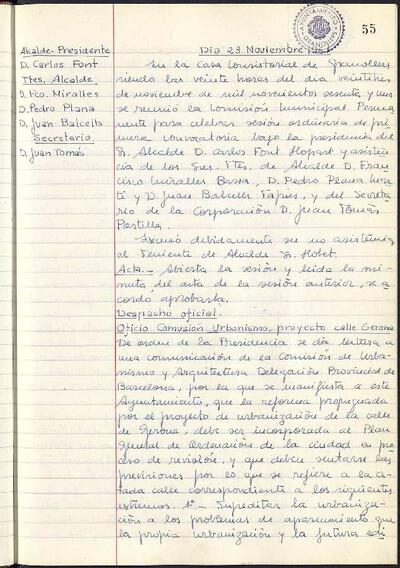 55
AYUNTAMIENTO
Alcalde-Presidente
D. Carlos Font
Ttes. Alcalde
D. Fco. Miralles
D. Pedro Plana
D. Juan Balcells
Secretario
D. Juan Tomás
Día 23 Noviembre
En la Casa Consistorial de Granollers
siendo las veinte horas del día veintitres
de noviembre de mil novecientos sesenta y uno
se reunió la Comisión Municipal Perma
nente para celebrar sesión ordinaria de pri
mera convocatoria bajo la presidencia del
Sr. Alcalde D. Carlos Font Llopart y asisten
cia de los Sres. Ttes. de Alcalde D. Fran
cisco Miralles Bassa, D. Pedro Plana
y D. Juan Balcells Tapias, y del Secreta
rio de la Corporación D. Juan Tomás
Pastilla.
Excusó debidamente su no asistencia
el Teniente de Alcalde Sr. Llobet.
Acta.- Abierta la sesión y leída la mi
nuta del acta de la sesión anterior, se a
cordó aprobarla.
Despacho oficial.
Oficio Comisión Urbanismo, proyecto calle Gerona
De orden de la Presidencia se da lectura a
una comunicación de la Comisión de Urba
nismo y Arquitectura Delegación Provincial de
Barcelona, por la que se manifiesta a este
Ayuntamiento, que la reforma propugnada
por el proyecto de urbanización de la calle
de Gerona, debe ser incorporada al Plan
General de Ordenación de la ciudad en pro
ceso de revisión, y que deben sentarse las
previsiones por lo que se refiere a la ci
tada calle correspondiente a los siguientes
extremos. 1º- Supeditar la urbaniza
ción a los problemas de aparcamiento que
la propia urbanización y la futura edi